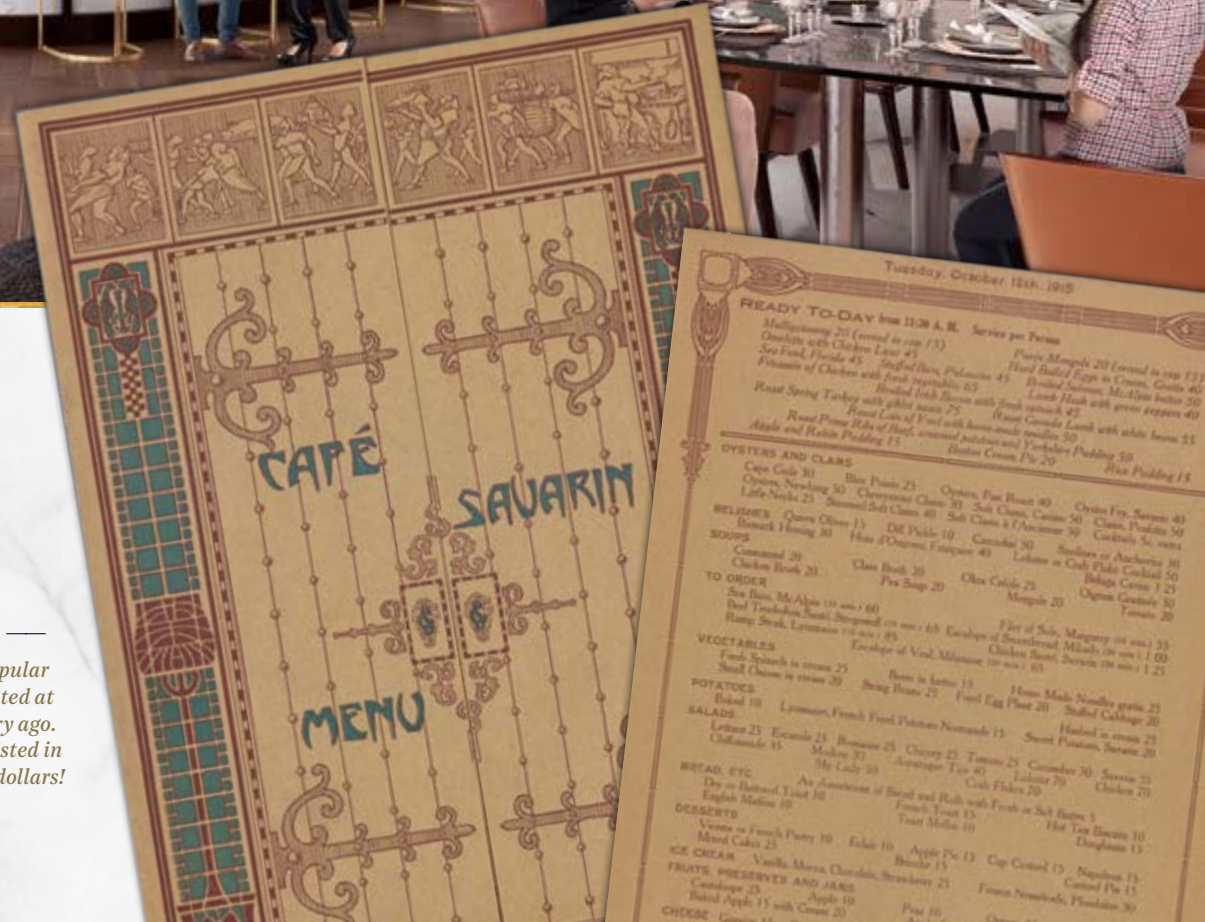 CAFÉ
SAVARIN
MENU
pular
ted at
ry ago.
sted in
dollars!
Tuesday, October 12th, 1915
READY TO-DAY from 11:30 A. M. Service per Person
Mulligatawny 20 (served in cup 15) Purée Mongole 20 (served in cup 15)
Omelette with Chicken Liver 45 Hard Boiled Eggs in Cream, Gratin 40
Sea Food, Florida 45 Stuffed Bass, 45 Broiled Salmon, McAlpin butter 50
Fricassee of Chicken with fresh vegetables 65 Lamb Hash with green peppers 40
Broiled Irish Bacon with fresh spinach 45
Roast Spring Turkey with giblet sauce 75 Roast Lamb with white beans 55
Roast Loin of Veal with home-made noodles 50
Roast Prime Ribs of Beef, creamed potatoes and Yorkshire Pudding 50
Apple and Raisin Pudding 15 Boston Cream Pie 20 Rice Pudding 15
OYSTERS AND CLAMS
Cape Cods 30 Blue Points 25 Oysters, Pan Roast 40 Oyster Fry, Savarin 40
Oysters, Newburg 50 Cherrystone Clams 30 Soft Clams, 50 Clams, 50
Little Necks 25 Steamed Soft Clams 40 Soft Clams à l'Ancienne 50 Cocktails 5c. extra
RELISHES Queen Olives 15 Dill Pickle 10 50 Sardines or Anchovies 30
Bismark Herring 30 Hors d'Oeuvres, 40 Lobster or Crab Flake Cocktail 50
Beluga Caviar 1 25
SOUPS
Consommé 20 Clam Broth 20 Okra Créole 25 Oignon Gratinée 30
Chicken Broth 20 Pea Soup 20 Mongole 20 Tomato 20
TO ORDER
Sea Bass, McAlpin 60 Filet of Sole, Marguery 55
Beef Tenderloin Sauté, 65 Escalope of Sweetbread, 60
Rump Steak, Lyonnaise 85 Escalope of Veal, Milanaise 65 Chicken Sauté, Savarin 1 25
VEGETABLES
Fresh Spinach in cream 25 Beets in butter 15 Home Made Noodles gratin 25
Small Onions in cream 20 String Beans 25 Fried Egg Plant 20 Stuffed Cabbage 20
POTATOES
Baked 10 Lyonnaise, French Fried, Potatoes Normande 15 Hashed in cream 25
Sweet Potatoes, Savarin 20
SALADS
Lettuce 25 Escarole 25 Romaine 25 Chicory 25 Tomato 25 Cucumber 30 Savarin 35
Chiffonnade 35 30 Asparagus Tips 40 Lobster 70 Chicken 70
My Lady 50 Crab Flakes 70
BREAD, ETC. An Assortment of Bread and Rolls with Fresh or Salt Butter 5
Dry or Buttered Toast 10 French Toast 15 Hot Tea Biscuits 10
English Muffins 10 Toast Melba 10 Doughnuts 15
DESSERTS
Vienna or French Pastry 10 Eclair 10 Apple Pie 15 Cup Custard 15 Napoleon 15
Mixed Cakes 25 Brioche 15 Custard Pie 15
ICE CREAM Vanilla, Mocca, Chocolate, Strawberry 25 30
FRUITS, PRESERVES AND JAMS
Cantaloupe 25 Apple 10 Pear 10
Baked Apple 15 with Cream 20
CHEESE